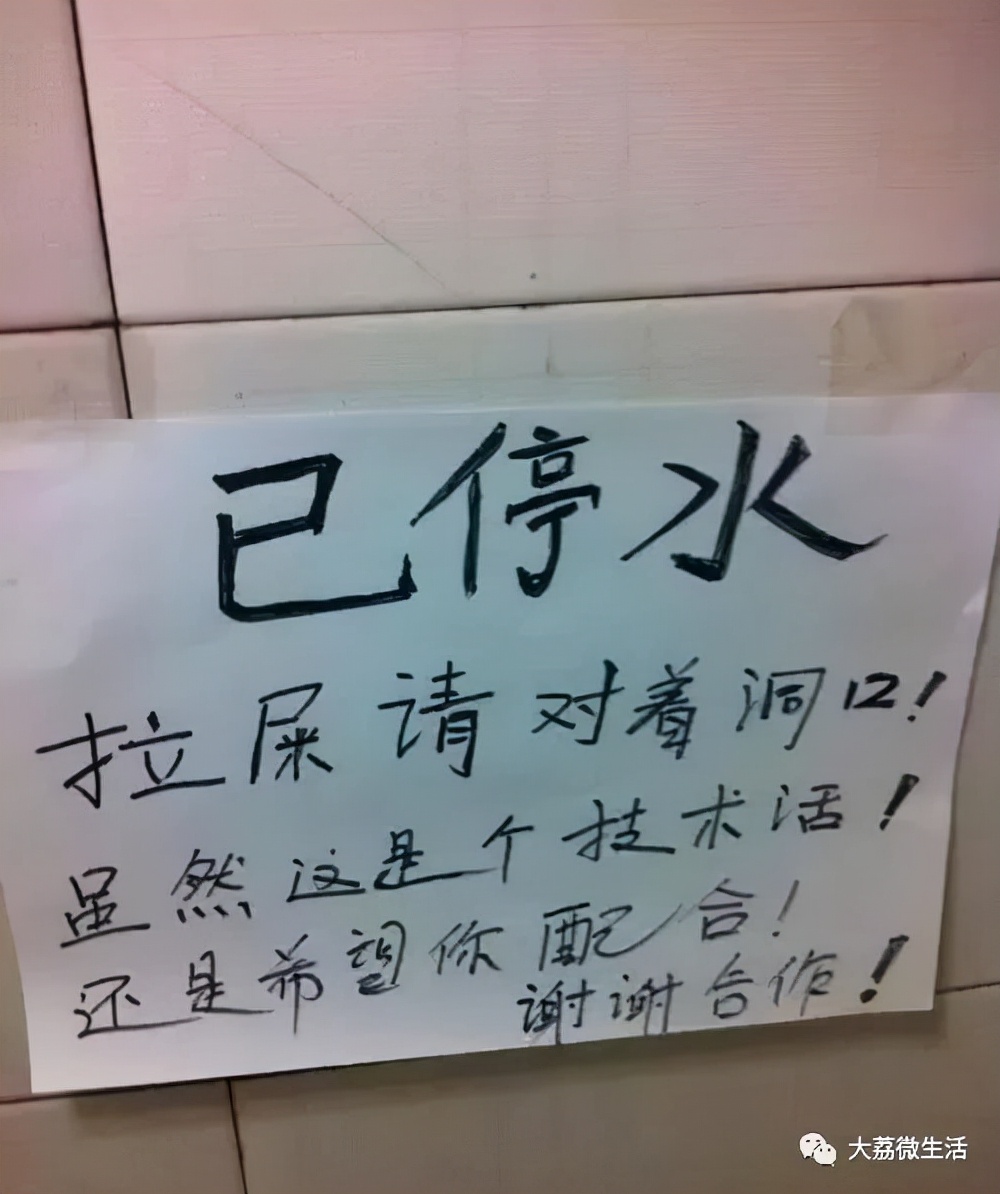 已停水
拉屎请对着洞口!
虽然这是个技术活!
还是希望你配合!
谢谢合作!
大荔微生活